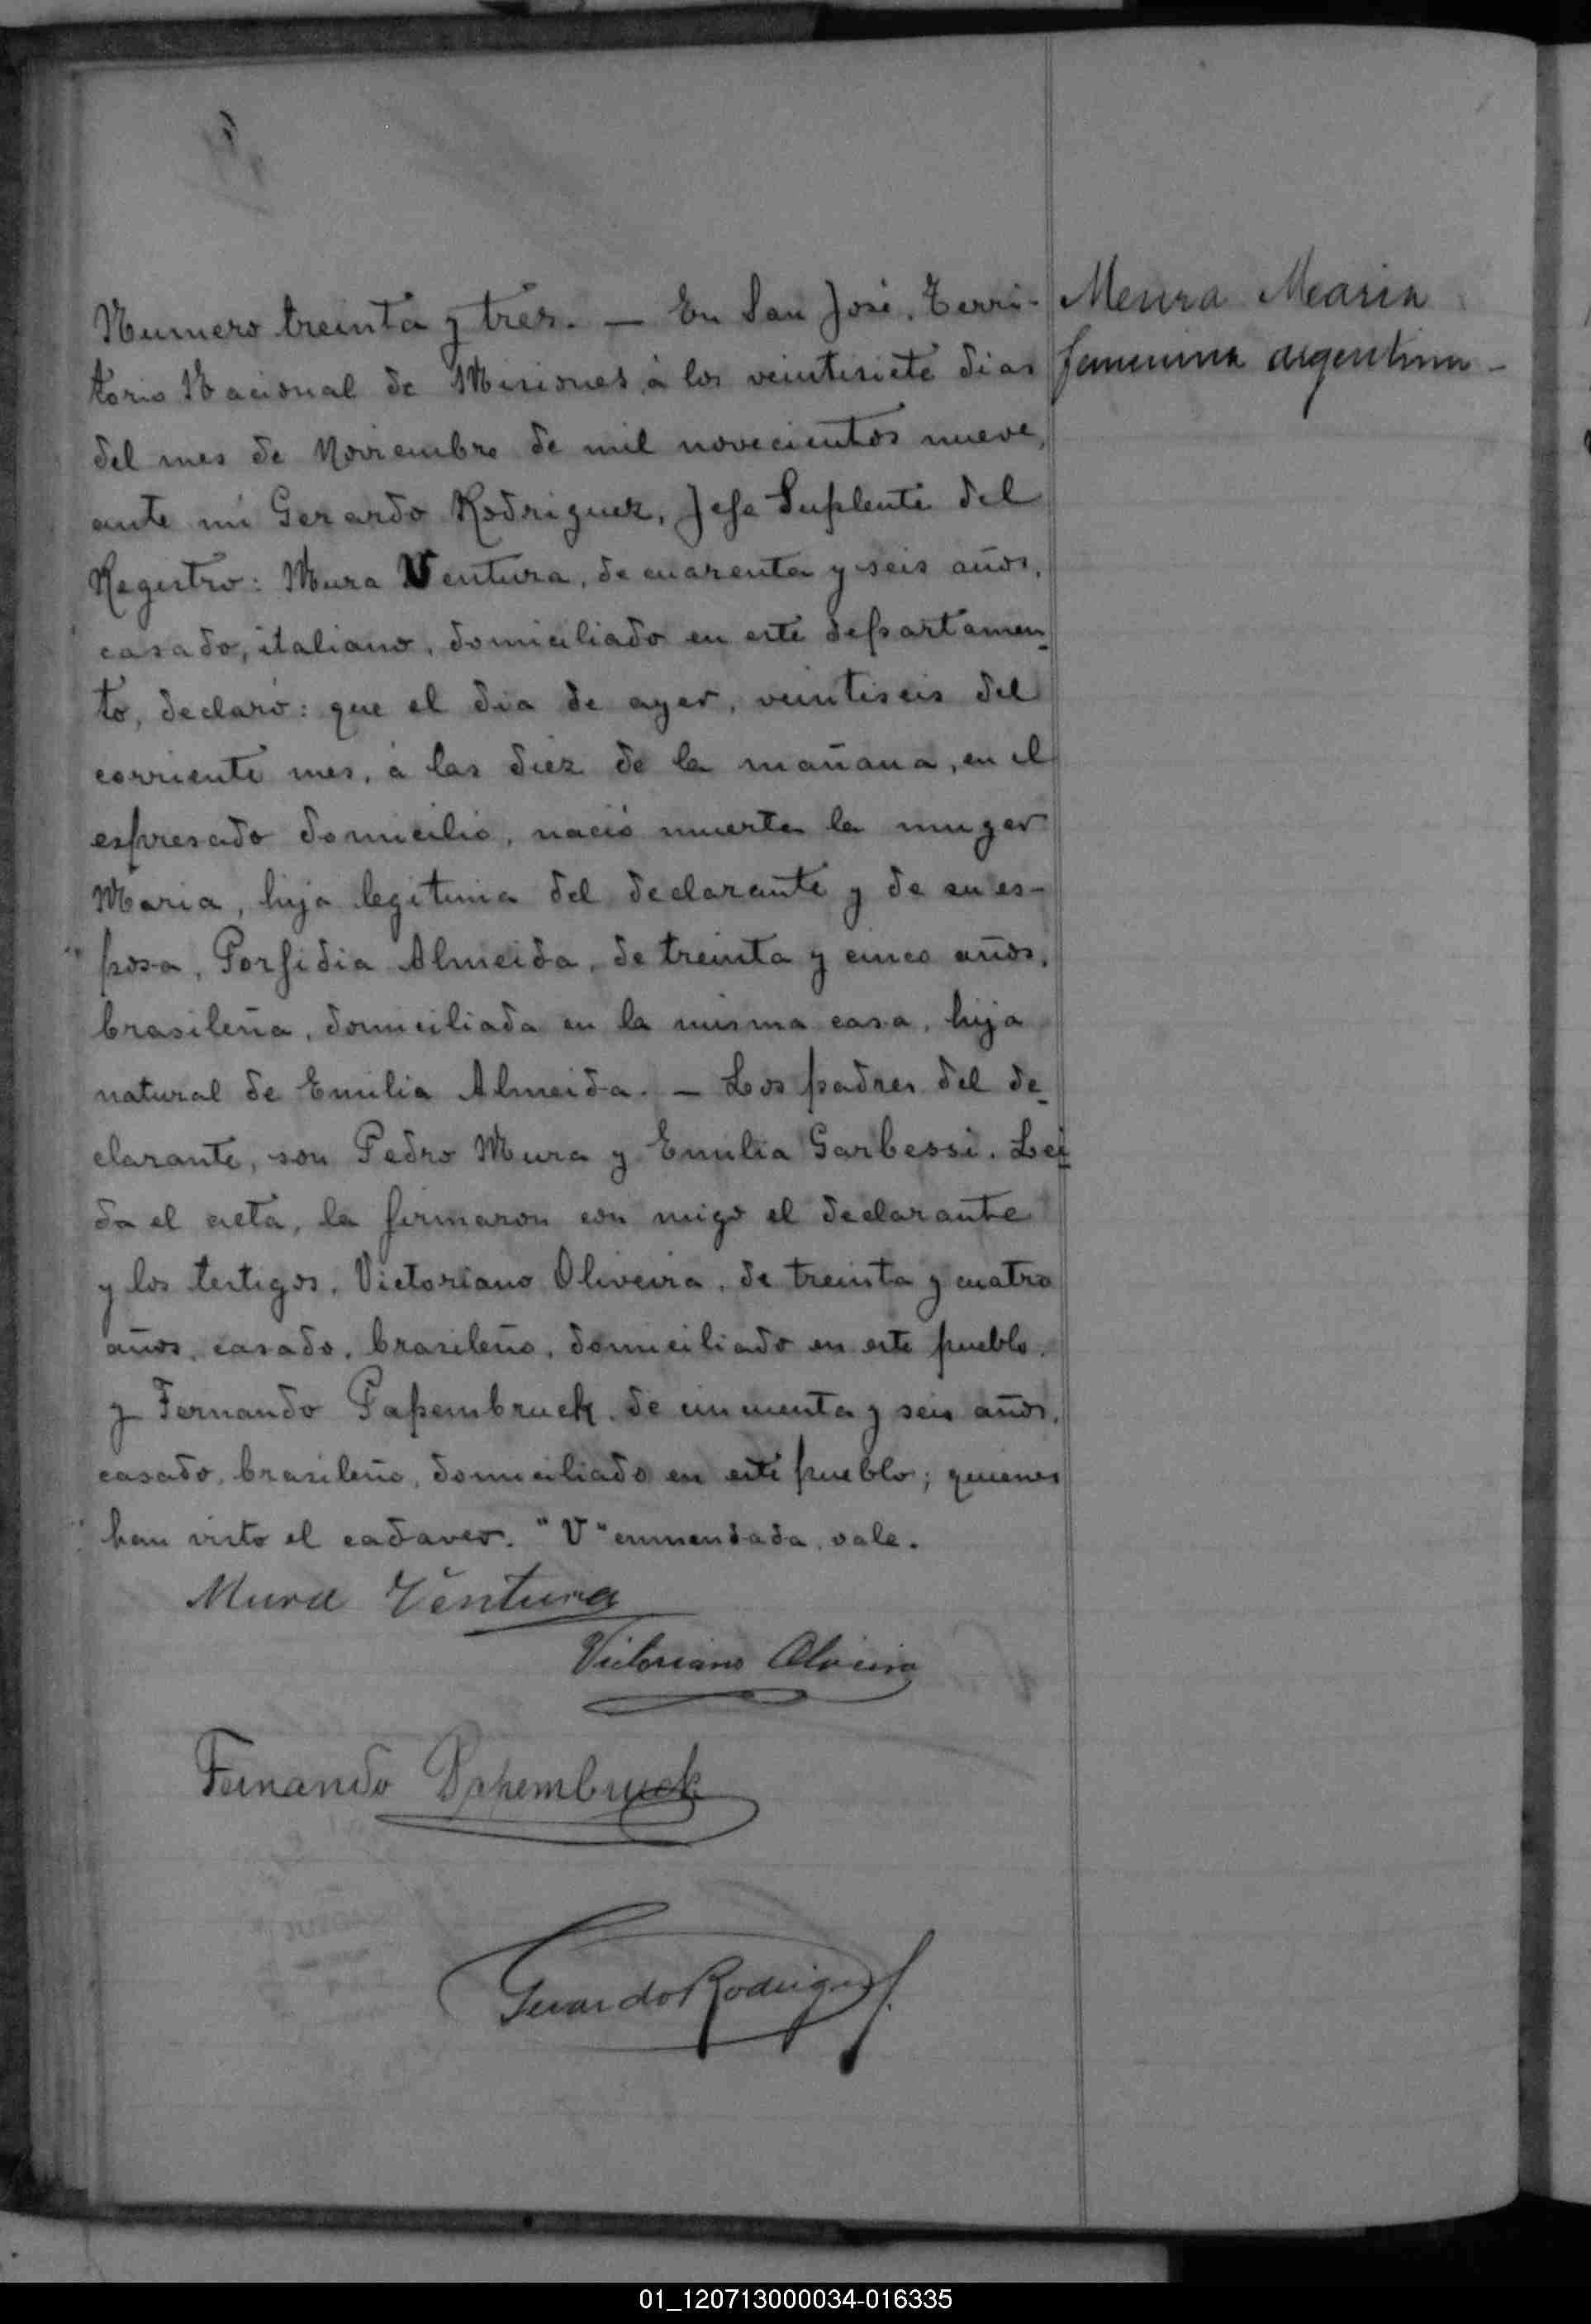 Numero treinta y tres. — En San José, Terri-
torio Nacional de Misiones, á los veintisiete dias
del mes de Noviembre de mil novecientos nueve,
ante mi Gerardo Rodriguez, Jefe Suplente del
Registro: Mura Ventura, de cuarenta y seis años,
casado, italiano, domiciliado en este departamen-
to, declaró: que el dia de ayer, veintiseis del
corriente mes, á las diez de la mañana, en el
espresado domicilio, nació muerta la muger
Maria, hija legitima del declarante y de su es-
posa, Porfidia Almeida, de treinta y cinco años,
brasileña, domiciliada en la misma casa, hija
natural de Emilia Almeida. — Los padres del de-
clarante, son Pedro Mura y Emilia Garbessi. Lei-
da el acta, la firmaron con migo el declarante
y los testigos, Victoriano Oliveira, de treinta y cuatro
años, casado, brasileño, domiciliado en este pueblo,
y Fernando Papembruck, de cincuenta y seis años,
casado, brasileño, domiciliado en este pueblo; quienes
han visto el cadaver. "V" enmendada, vale.
Mura Ventura
Victoriano Oliveira
Fernando Papembruck
Gerardo Rodriguez
Mura Maria
femenina argentina -
01_120713000034-016335